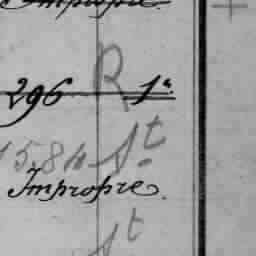 Impropre.
R
296 1a.
15.84 St
Impropre.
St